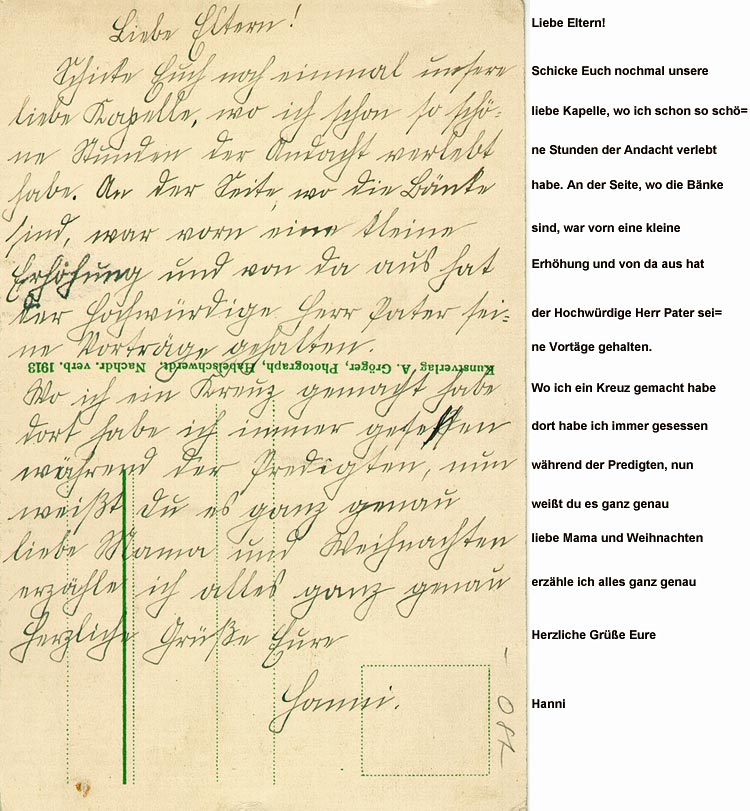 Liebe Eltern!
Schicke Euch noch einmal unsere
liebe Kapelle, wo ich schon so schö=
ne Stunden der Andacht verlebt
habe. An der Seite, wo die Bänke
sind, war vorn eine kleine
Erhöhung und von da aus hat
der Hochwürdige Herr Pater sei=
ne Vorträge gehalten.
Kunstverlag A. Gröger, Photograph, Habelschwerdt. Nachdr. verb. 1913
Wo ich ein Kreuz gemacht habe
dort habe ich immer gesessen
während der Predigten, nun
weißt du es ganz genau
liebe Mama und Weihnachten
erzähle ich alles ganz genau
Herzliche Grüße Eure
Hanni.
Liebe Eltern!
Schicke Euch nochmal unsere
liebe Kapelle, wo ich schon so schö=
ne Stunden der Andacht verlebt
habe. An der Seite, wo die Bänke
sind, war vorn eine kleine
Erhöhung und von da aus hat
der Hochwürdige Herr Pater sei=
ne Vortäge gehalten.
Wo ich ein Kreuz gemacht habe
dort habe ich immer gesessen
während der Predigten, nun
weißt du es ganz genau
liebe Mama und Weihnachten
erzähle ich alles ganz genau
Herzliche Grüße Eure
Hanni